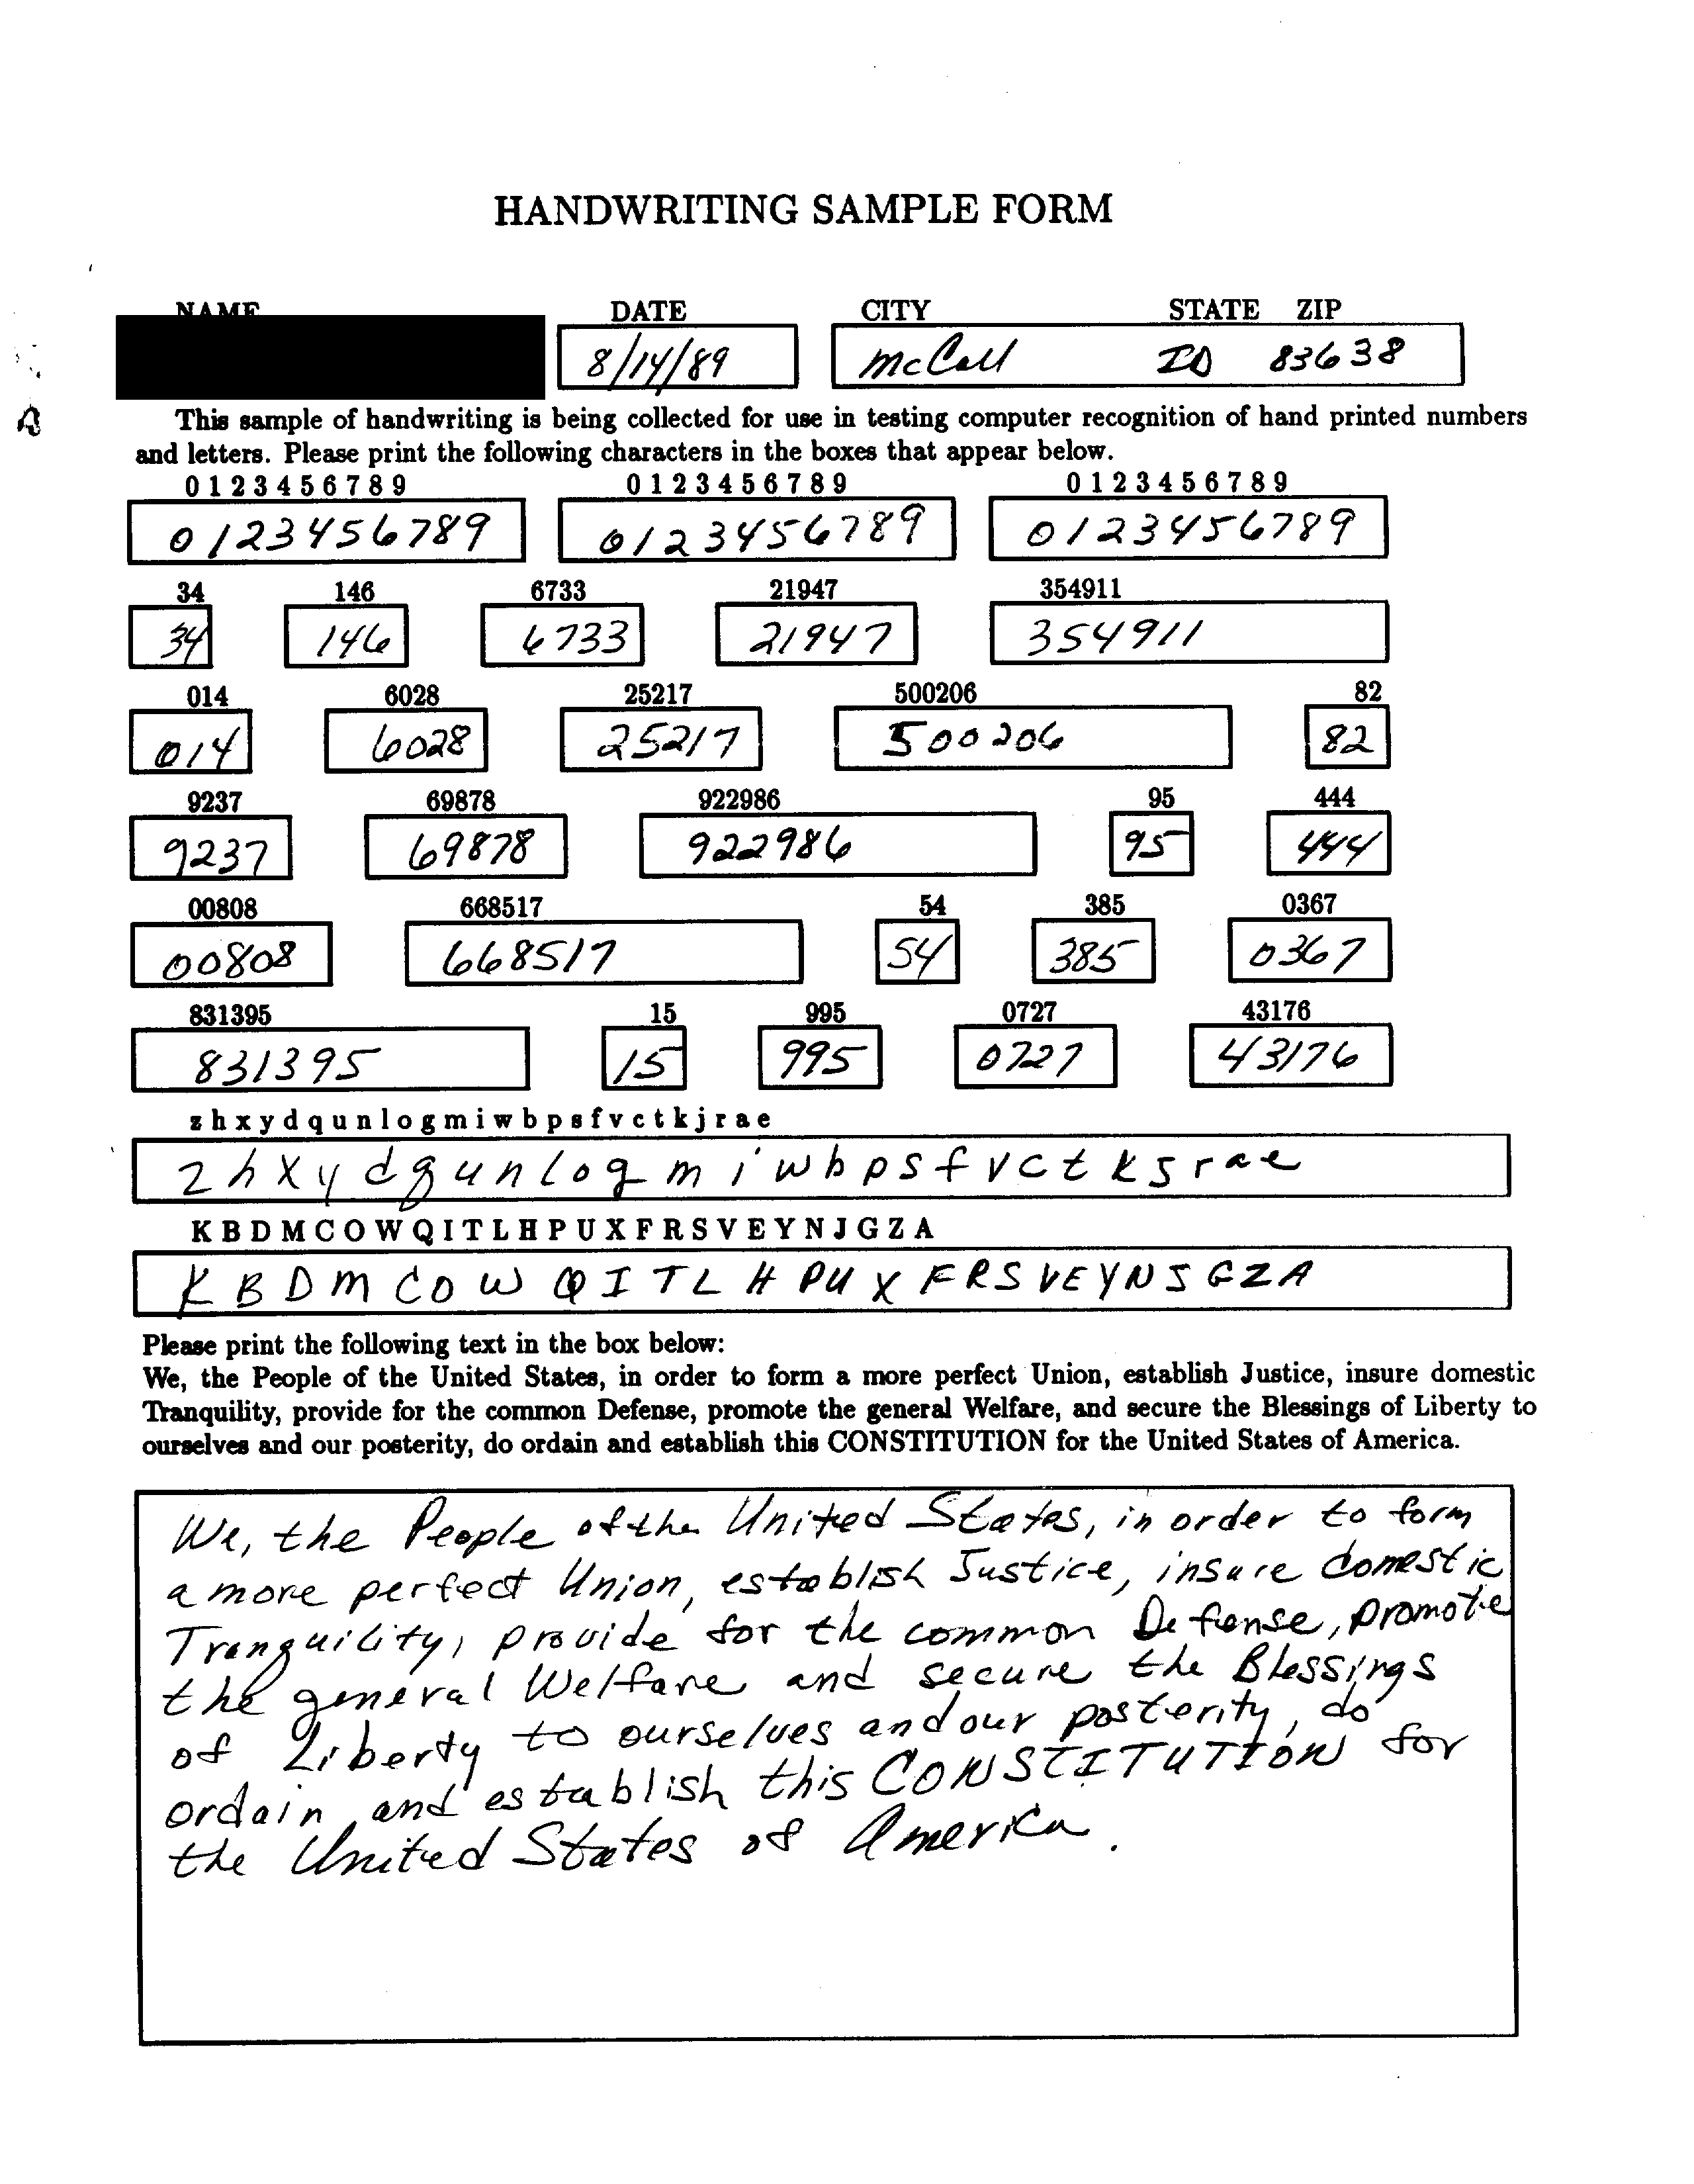 HANDWRITING SAMPLE FORM
NAME DATE CITY STATE ZIP
8/14/89 McCall ID 83638
This sample of handwriting is being collected for use in testing computer recognition of hand printed numbers
and letters. Please print the following characters in the boxes that appear below.
0 1 2 3 4 5 6 7 8 9 0 1 2 3 4 5 6 7 8 9 0 1 2 3 4 5 6 7 8 9
0123456789 0123456789 0123456789
34 146 6733 21947 354911
34 146 6733 21947 354911
014 6028 25217 500206 82
014 6028 25217 500206 82
9237 69878 922986 95 444
9237 69878 922986 95 444
00808 668517 54 385 0367
00808 668517 54 385 0367
831395 15 995 0727 43176
831395 15 995 0727 43176
z h x y d q u n l o g m i w b p s f v c t k j r a e
z h x y d q u n l o g m i w b p s f v c t k j r a e
K B D M C O W Q I T L H P U X F R S V E Y N J G Z A
K B D M C O W Q I T L H P U X F R S V E Y N J G Z A
Please print the following text in the box below:
We, the People of the United States, in order to form a more perfect Union, establish Justice, insure domestic
Tranquility, provide for the common Defense, promote the general Welfare, and secure the Blessings of Liberty to
ourselves and our posterity, do ordain and establish this CONSTITUTION for the United States of America.
We, the People of the United States, in order to form
a more perfect Union, establish Justice, insure domestic
Tranquility, provide for the common Defense, promote
the general Welfare and secure the Blessings
of Liberty to ourselves and our posterity, do
ordain and establish this CONSTITUTION for
the United States of America.